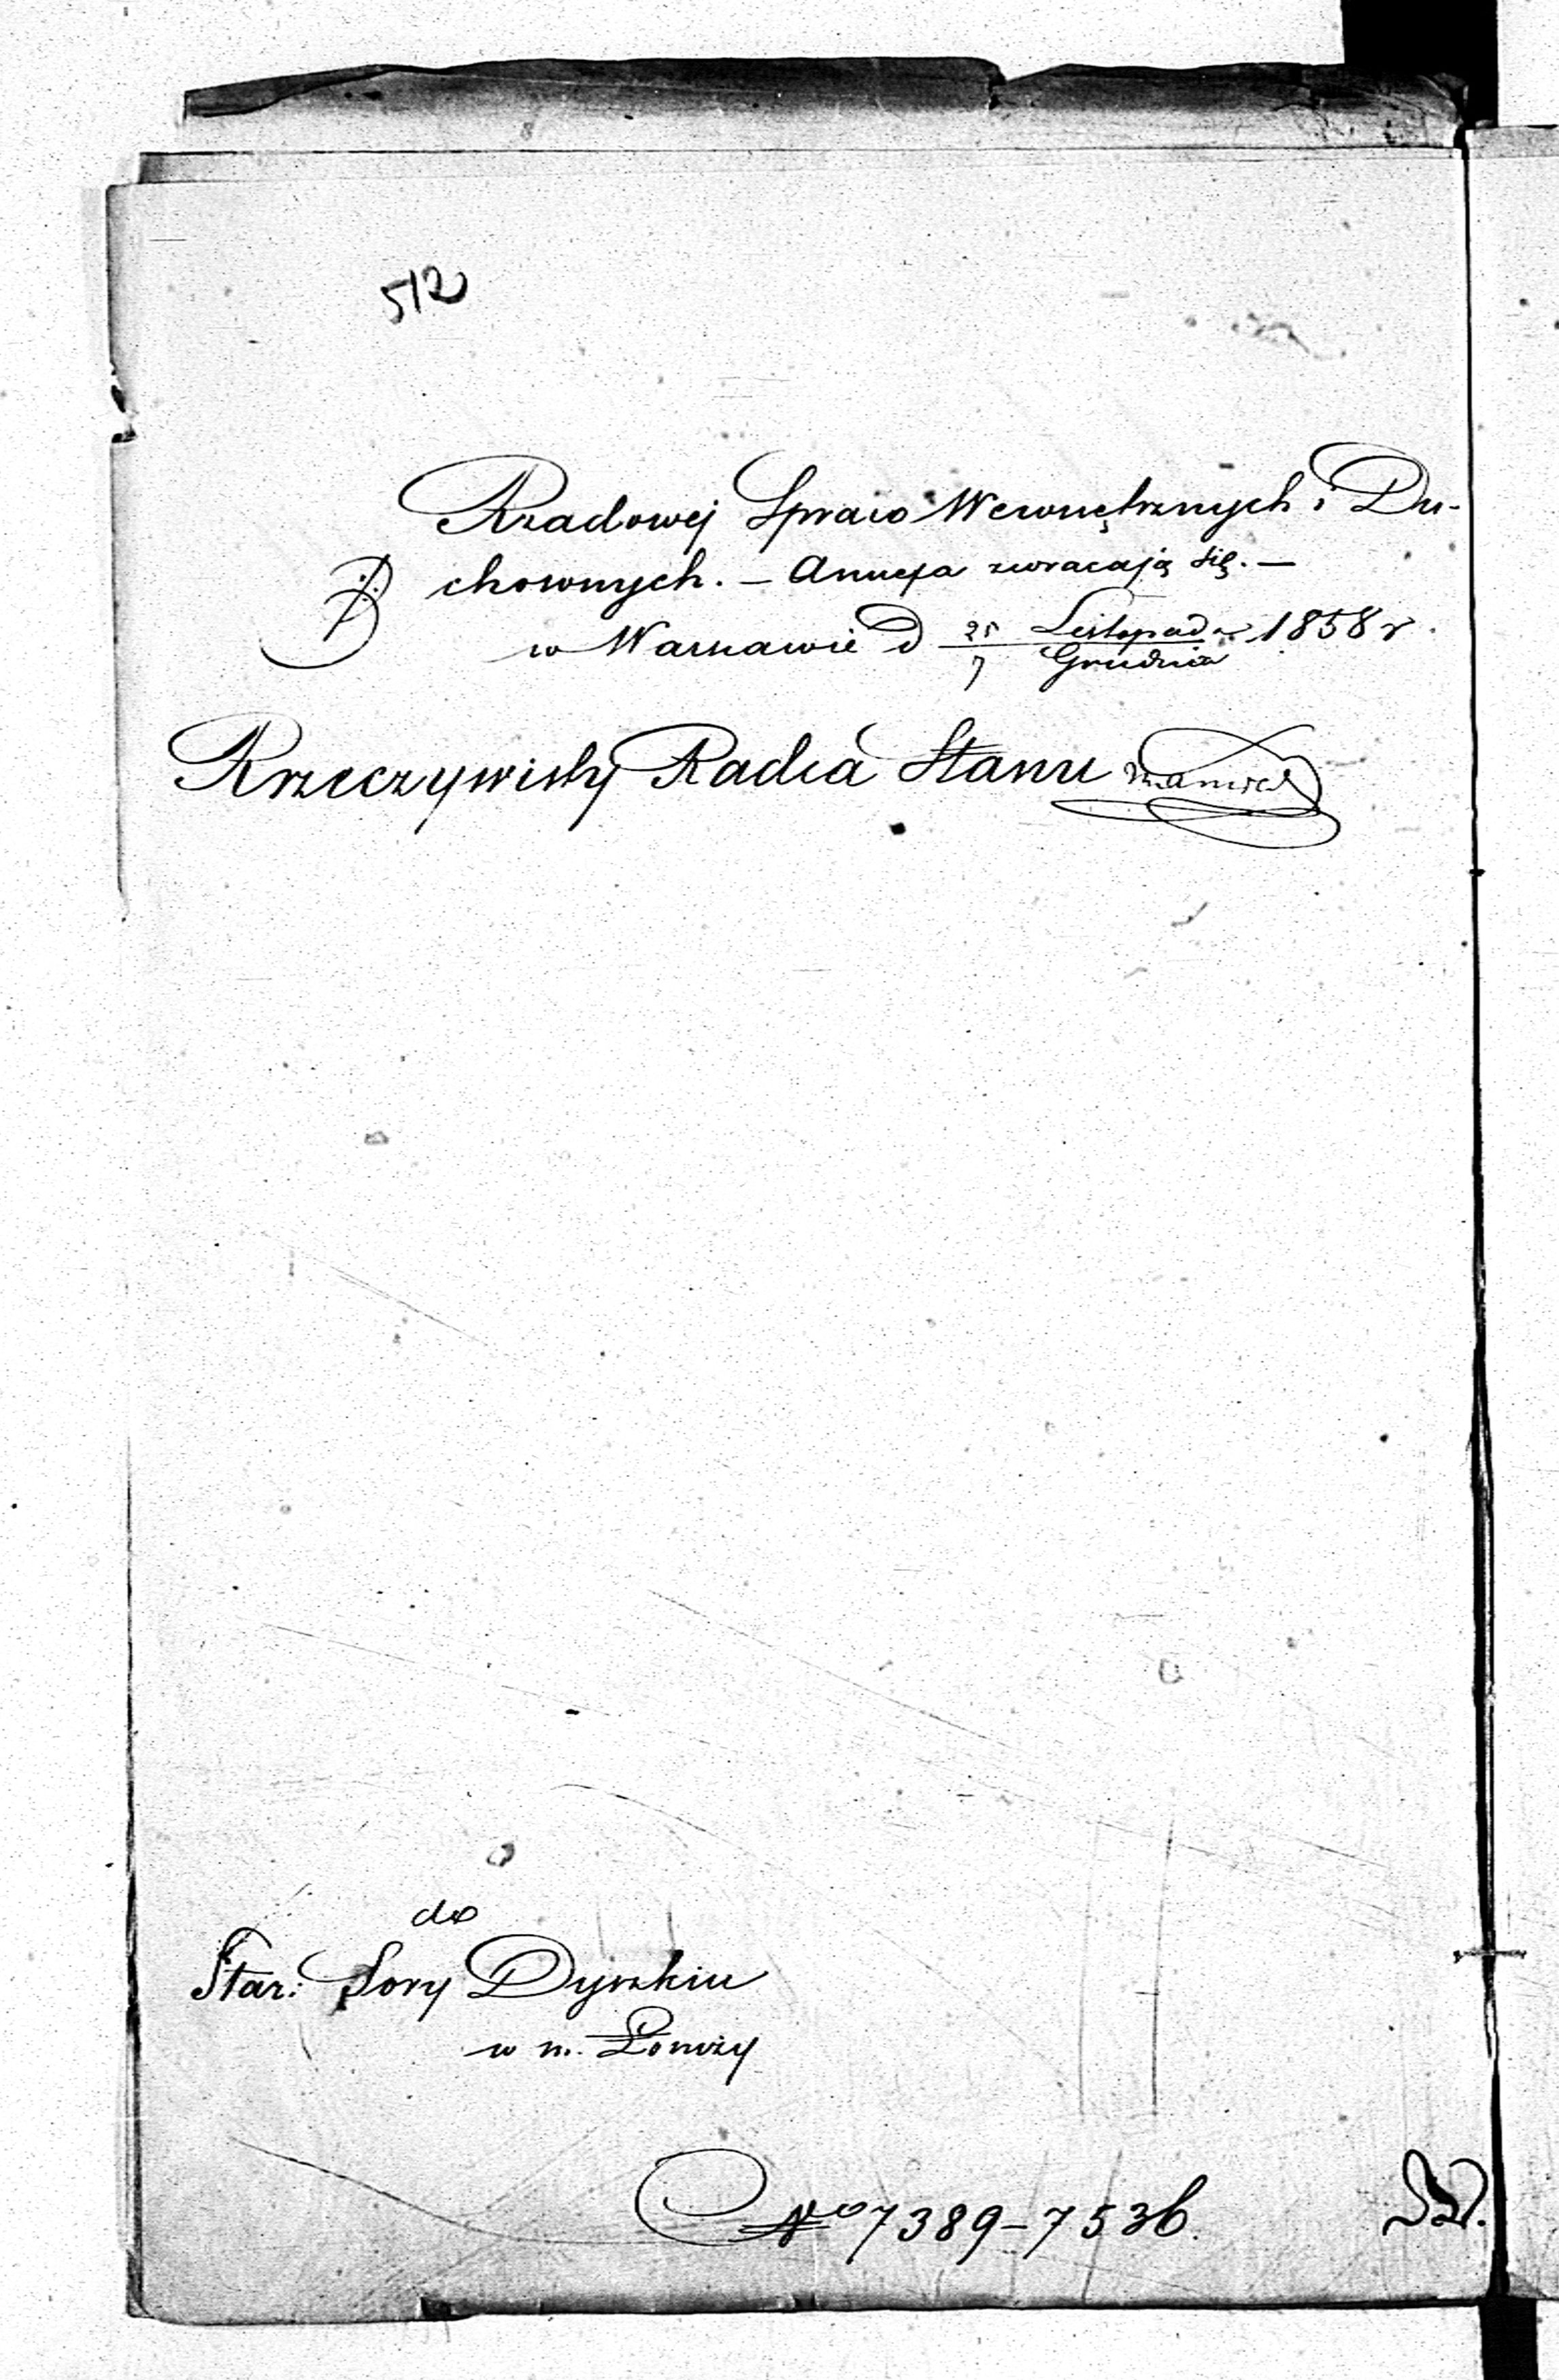 512
Rządowej Spraw Wewnętrznych i Du-
chownych. – Annexa zwracają się. –
w Warszawie d 25/7 Listopada/Grudnia 1858 r.
Rzeczywisty Radca Stanu
do
Star: Sory Dyszkin
w m. Łomży
No 7389–7536.